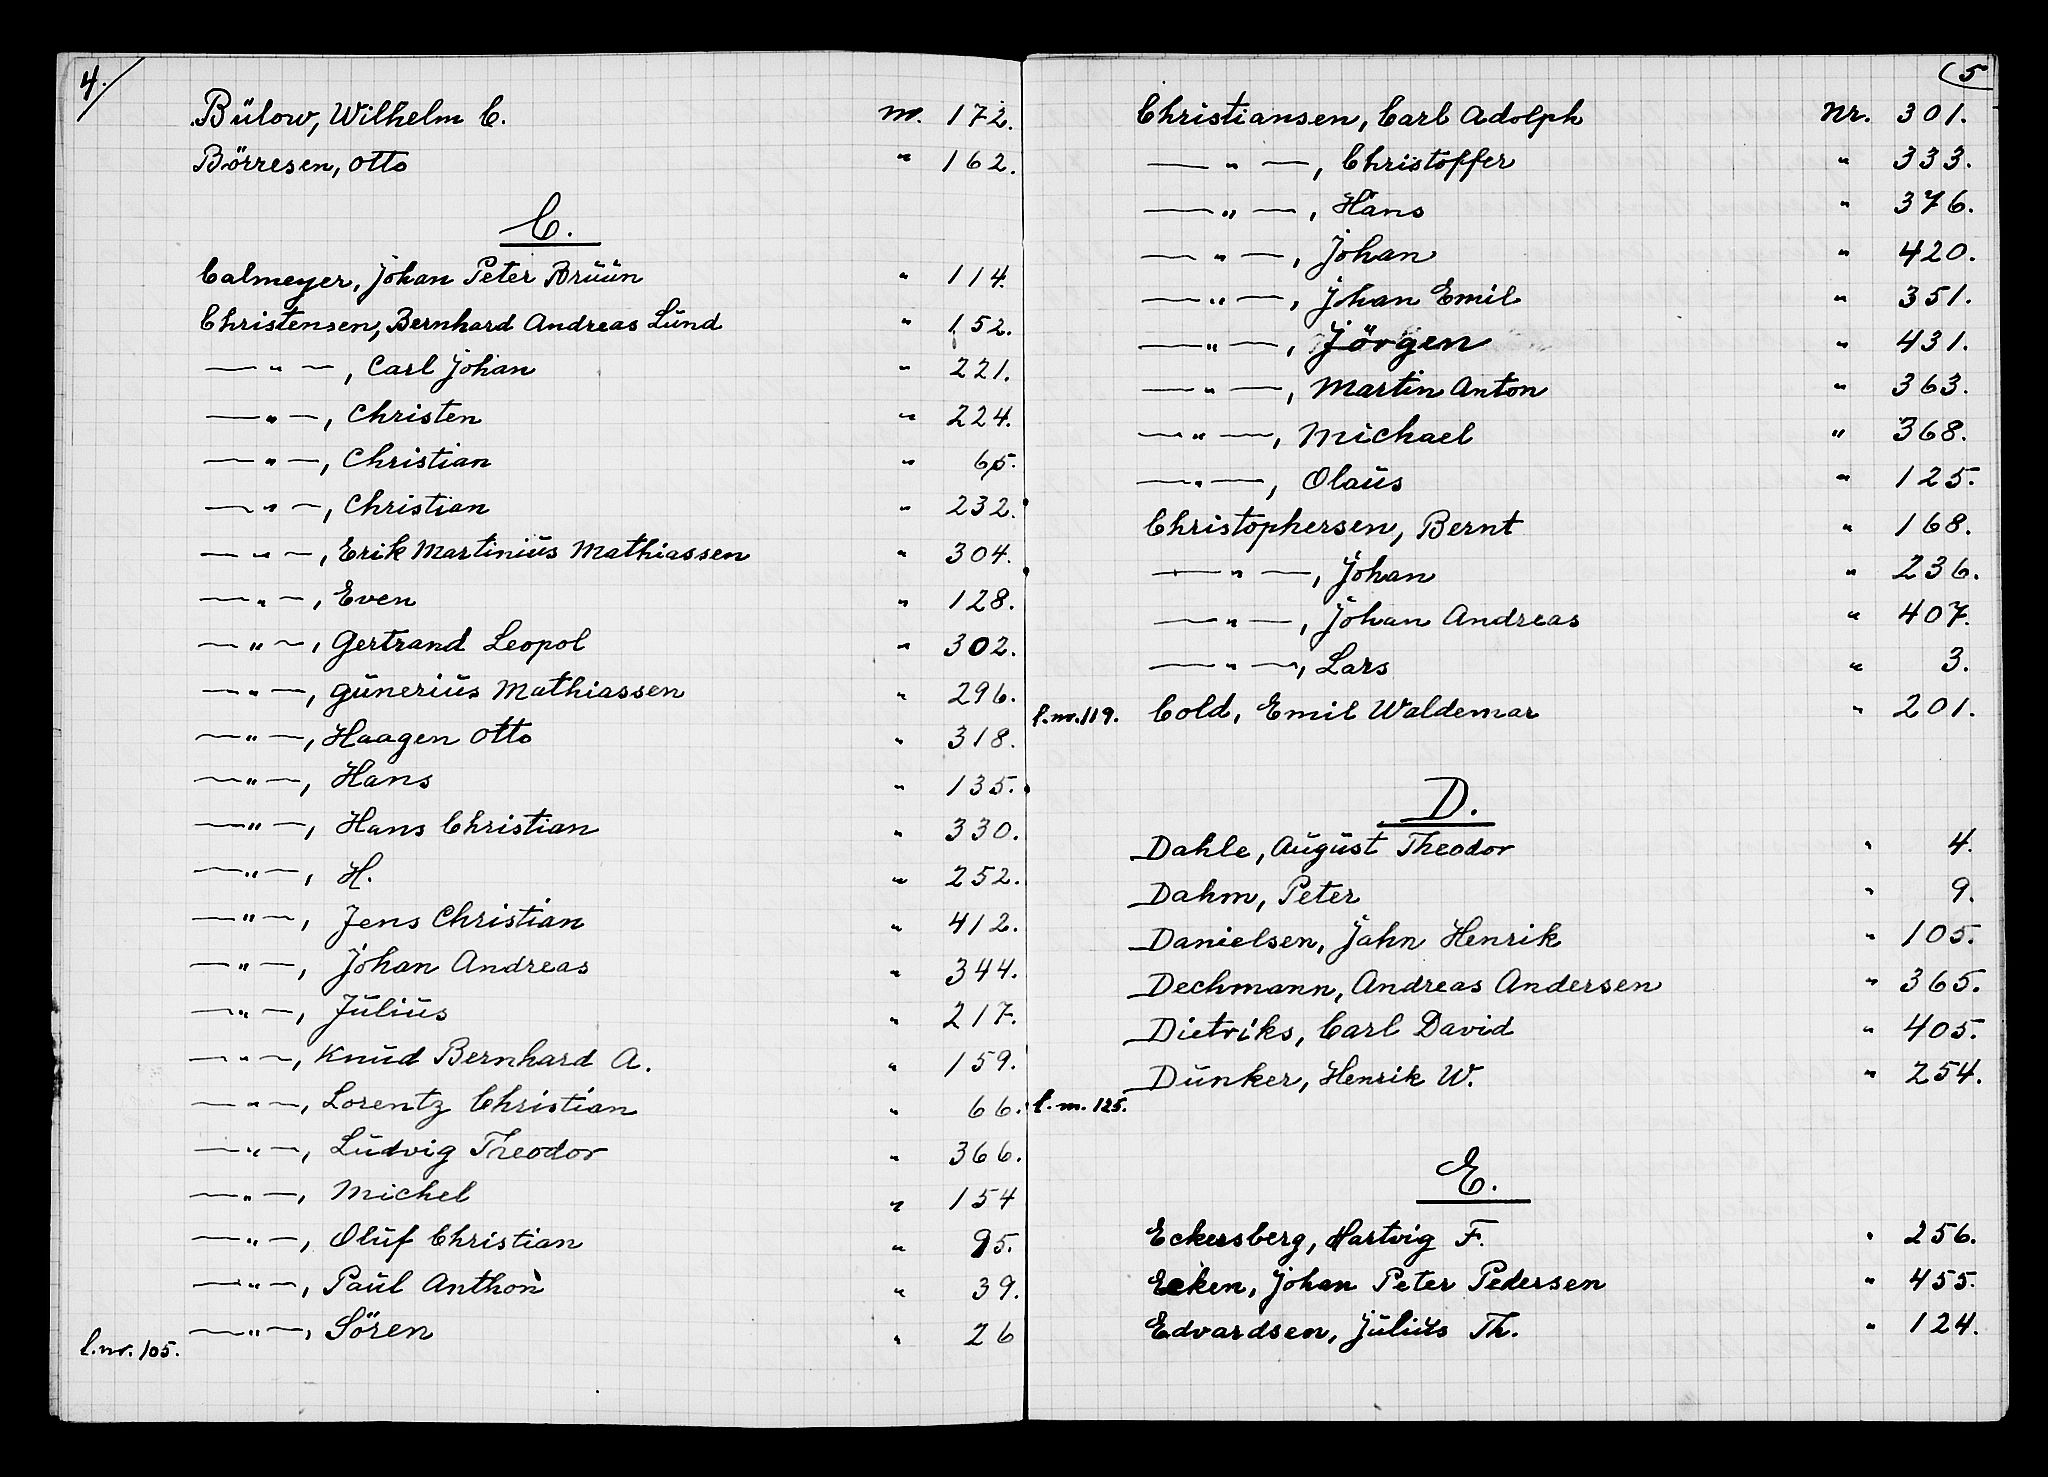 4.
Bülow, Wilhelm C. nr. 172.
Börresen, Otto " 162.
C.
Calmeyer, Johan Peter Brüün " 114.
Christensen, Bernhard Andreas Lünd " 152.
— " —, Carl Johan " 221.
— " —, Christen " 224.
— " —, Christian " 65.
— " —, Christian " 232.
— " —, Erik Martiniüs Mathiassen " 304.
— " —, Even " 128.
— " —, Gertrand Leopol " 302.
— " —, Güneriüs Mathiassen " 296.
— " —, Haagen Otto " 318.
— " —, Hans " 135.
— " —, Hans Christian " 330.
— " —, H. " 252.
— " —, Jens Christian " 412.
— " —, Johan Andreas " 344.
— " —, Jüliüs " 217.
— " —, Knüd Bernhard A. " 159.
— " —, Lorentz Christian " 66.
— " —, Lüdvig Theodor " 366.
— " —, Michel " 154
— " —, Olüf Christian " 95.
— " —, Paül Anthon " 39.
— " —, Sören " 26
l.nr. 105.
5
Christiansen, Carl Adolph Nr. 301.
— " —, Christoffer " 333.
— " —, Hans " 376.
— " —, Johan " 420.
— " —, Johan Emil " 351.
— " —, Jörgen " 431.
— " —, Martin Anton " 363.
— " —, Michael " 368.
— " —, Olaüs " 125.
Christophersen, Bernt " 168.
— " —, Johan " 236.
— " —, Johan Andreas " 407.
— " —, Lars " 3.
l.nr. 119. Cold, Emil Waldemar " 201.
D.
Dahle, Aügüst Theodor " 4.
Dahm, Peter " 9.
Danielsen, Jahn Henrik " 105.
Dechmann, Andreas Andersen " 365.
Dietriks, Carl David " 405.
Dünker, Henrik W. " 254.
l.nr. 125.
E.
Eckersberg, Hartvig F. " 256.
Ecken, Johan Peter Pedersen " 455.
Edvardsen, Jüliüs Th. " 124.